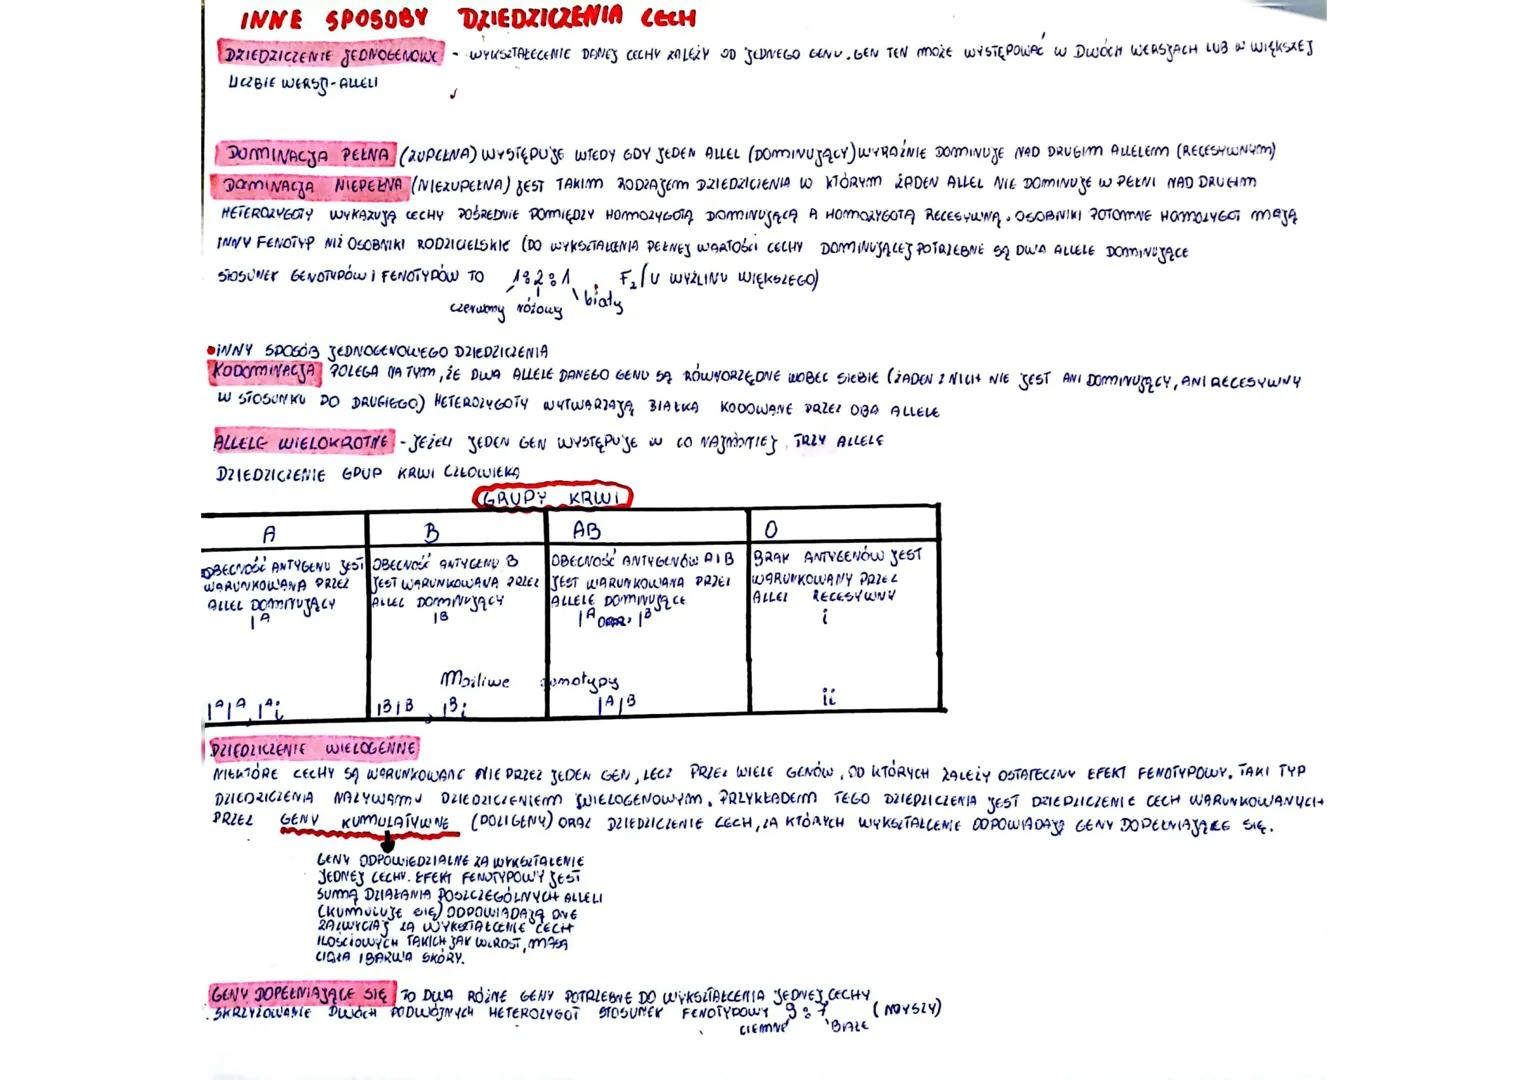 INNE SPOSOBY DZIEDZICZENIA CECH
DZIEDZICZENIE JEDNOGENOWE - WYKSZTAŁCENIE DANEJ CECHY ZALEŻY OD JEDNEGO GENU. GEN TEN MOŻE WYSTĘPOWAĆ W DWÓCH WERSJACH LUB W WIĘKSZEJ
LICZBIE WERSJI-ALLELI
DOMINACJA PEŁNA (ZUPEŁNA) WYSTĘPUJE WTEDY GDY JEDEN ALLEL (DOMINUJĄCY) WYRAŹNIE DOMINUJE NAD DRUGIM ALLELEM (RECESYWNYM)
DOMINACJA NIEPEŁNA (NIEZUPEŁNA) JEST TAKIM RODZAJEM DZIEDZICZENIA W KTÓRYM ŻADEN ALLEL NIE DOMINUJE W PEŁNI NAD DRUGIM
HETEROZYGOTY WYKAZUJĄ CECHY POŚREDNIE POMIĘDZY HOMOZYGOTĄ DOMINUJĄCĄ A HOMOZYGOTĄ RECESYWNĄ. OSOBNIKI POTOMNE HOMOZYGOT MAJĄ
INNY FENOTYP NIŻ OSOBNIKI RODZICIELSKIE (DO WYKSZTAŁCENIA PEŁNEJ WARTOŚCI CECHY DOMINUJĄCEJ POTRZEBNE SĄ DWA ALLELE DOMINUJĄCE
STOSUNEK GENOTYPÓW I FENOTYPÓW TO 1:2:1 F2 (U WYŻLINU WIĘKSZEGO)
czerwony różowy biały
•INNY SPOSÓB JEDNOGENOWEGO DZIEDZICZENIA
KODOMINACJA POLEGA NA TYM, ŻE DWA ALLELE DANEGO GENU SĄ RÓWNORZĘDNE WOBEC SIEBIE (ŻADEN Z NICH NIE JEST ANI DOMINUJĄCY, ANI RECESYWNY
W STOSUNKU DO DRUGIEGO) HETEROZYGOTY WYTWARZAJĄ BIAŁKA KODOWANE PRZEZ OBA ALLELE
ALLELE WIELOKROTNE - JEŻELI JEDEN GEN WYSTĘPUJE W CO NAJMNIEJ TRZY ALLELE
DZIEDZICZENIE GRUP KRWI CZŁOWIEKA
GRUPY KRWI
A B AB O
OBECNOŚĆ ANTYGENU JEST
WARUNKOWANA PRZEZ
ALLEL DOMINUJĄCY
I^A
OBECNOŚĆ ANTYGENU B
JEST WARUNKOWANA PRZEZ
ALLEL DOMINUJĄCY
I^B
OBECNOŚĆ ANTYGENÓW A I B
JEST WARUNKOWANA PRZEZ
ALLELE DOMINUJĄCE
I^A ORAZ I^B
BRAK ANTYGENÓW JEST
WARUNKOWANY PRZEZ
ALLEL RECESYWNY
i
Możliwe genotypy
I^A I^A, I^A i I^B I^B, I^B i I^A I^B ii
DZIEDZICZENIE WIELOGENNE
NIEKTÓRE CECHY SĄ WARUNKOWANE NIE PRZEZ JEDEN GEN, LECZ PRZEZ WIELE GENÓW, OD KTÓRYCH ZALEŻY OSTATECZNY EFEKT FENOTYPOWY. TAKI TYP
DZIEDZICZENIA NAZYWAMY DZIEDZICZENIEM WIELOGENOWYM. PRZYKŁADEM TEGO DZIEDZICZENIA JEST DZIEDZICZENIE CECH WARUNKOWANYCH
PRZEZ GENY KUMULATYWNE (POLIGENY) ORAZ DZIEDZICZENIE CECH, ZA KTÓRYCH WYKSZTAŁCENIE ODPOWIADAJĄ GENY DOPEŁNIAJĄCE SIĘ.
GENY ODPOWIEDZIALNE ZA WYKSZTAŁCENIE
JEDNEJ CECHY. EFEKT FENOTYPOWY JEST
SUMĄ DZIAŁANIA POSZCZEGÓLNYCH ALLELI
(KUMULUJE SIĘ) ODPOWIADAJĄ ONE
ZAZWYCZAJ ZA WYKSZTAŁCENIE CECH
ILOŚCIOWYCH TAKICH JAK WZROST, MASA
CIAŁA I BARWA SKÓRY.
GENY DOPEŁNIAJĄCE SIĘ TO DWA RÓŻNE GENY POTRZEBNE DO WYKSZTAŁCENIA JEDNEJ CECHY
SKRZYŻOWANIE DWÓCH PODWÓJNYCH HETEROZYGOT STOSUNEK FENOTYPOWY 9:7 (MYSZY)
CIEMNE BIAŁE